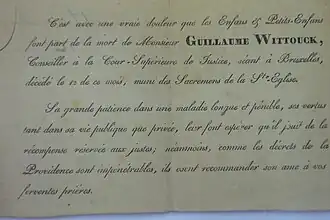 C'est avec une vraie douleur que les Enfans & Petits-Enfans
font part de la mort de Monsieur GUILLAUME WITTOUCK,
Conseiller à la Cour-Supérieure de Justice, séant à Bruxelles,
décédé le 12 de ce mois, muni des Sacremens de la Ste-Eglise.
Sa grande patience dans une maladie longue et pénible, ses vertus
tant dans sa vie publique que privée, leur font espérer qu'il jouit de la
récompense réservée aux justes; néanmoins, comme les décrets de la
Providence sont impénétrables, ils osent recommander son ame à vos
ferventes prières.